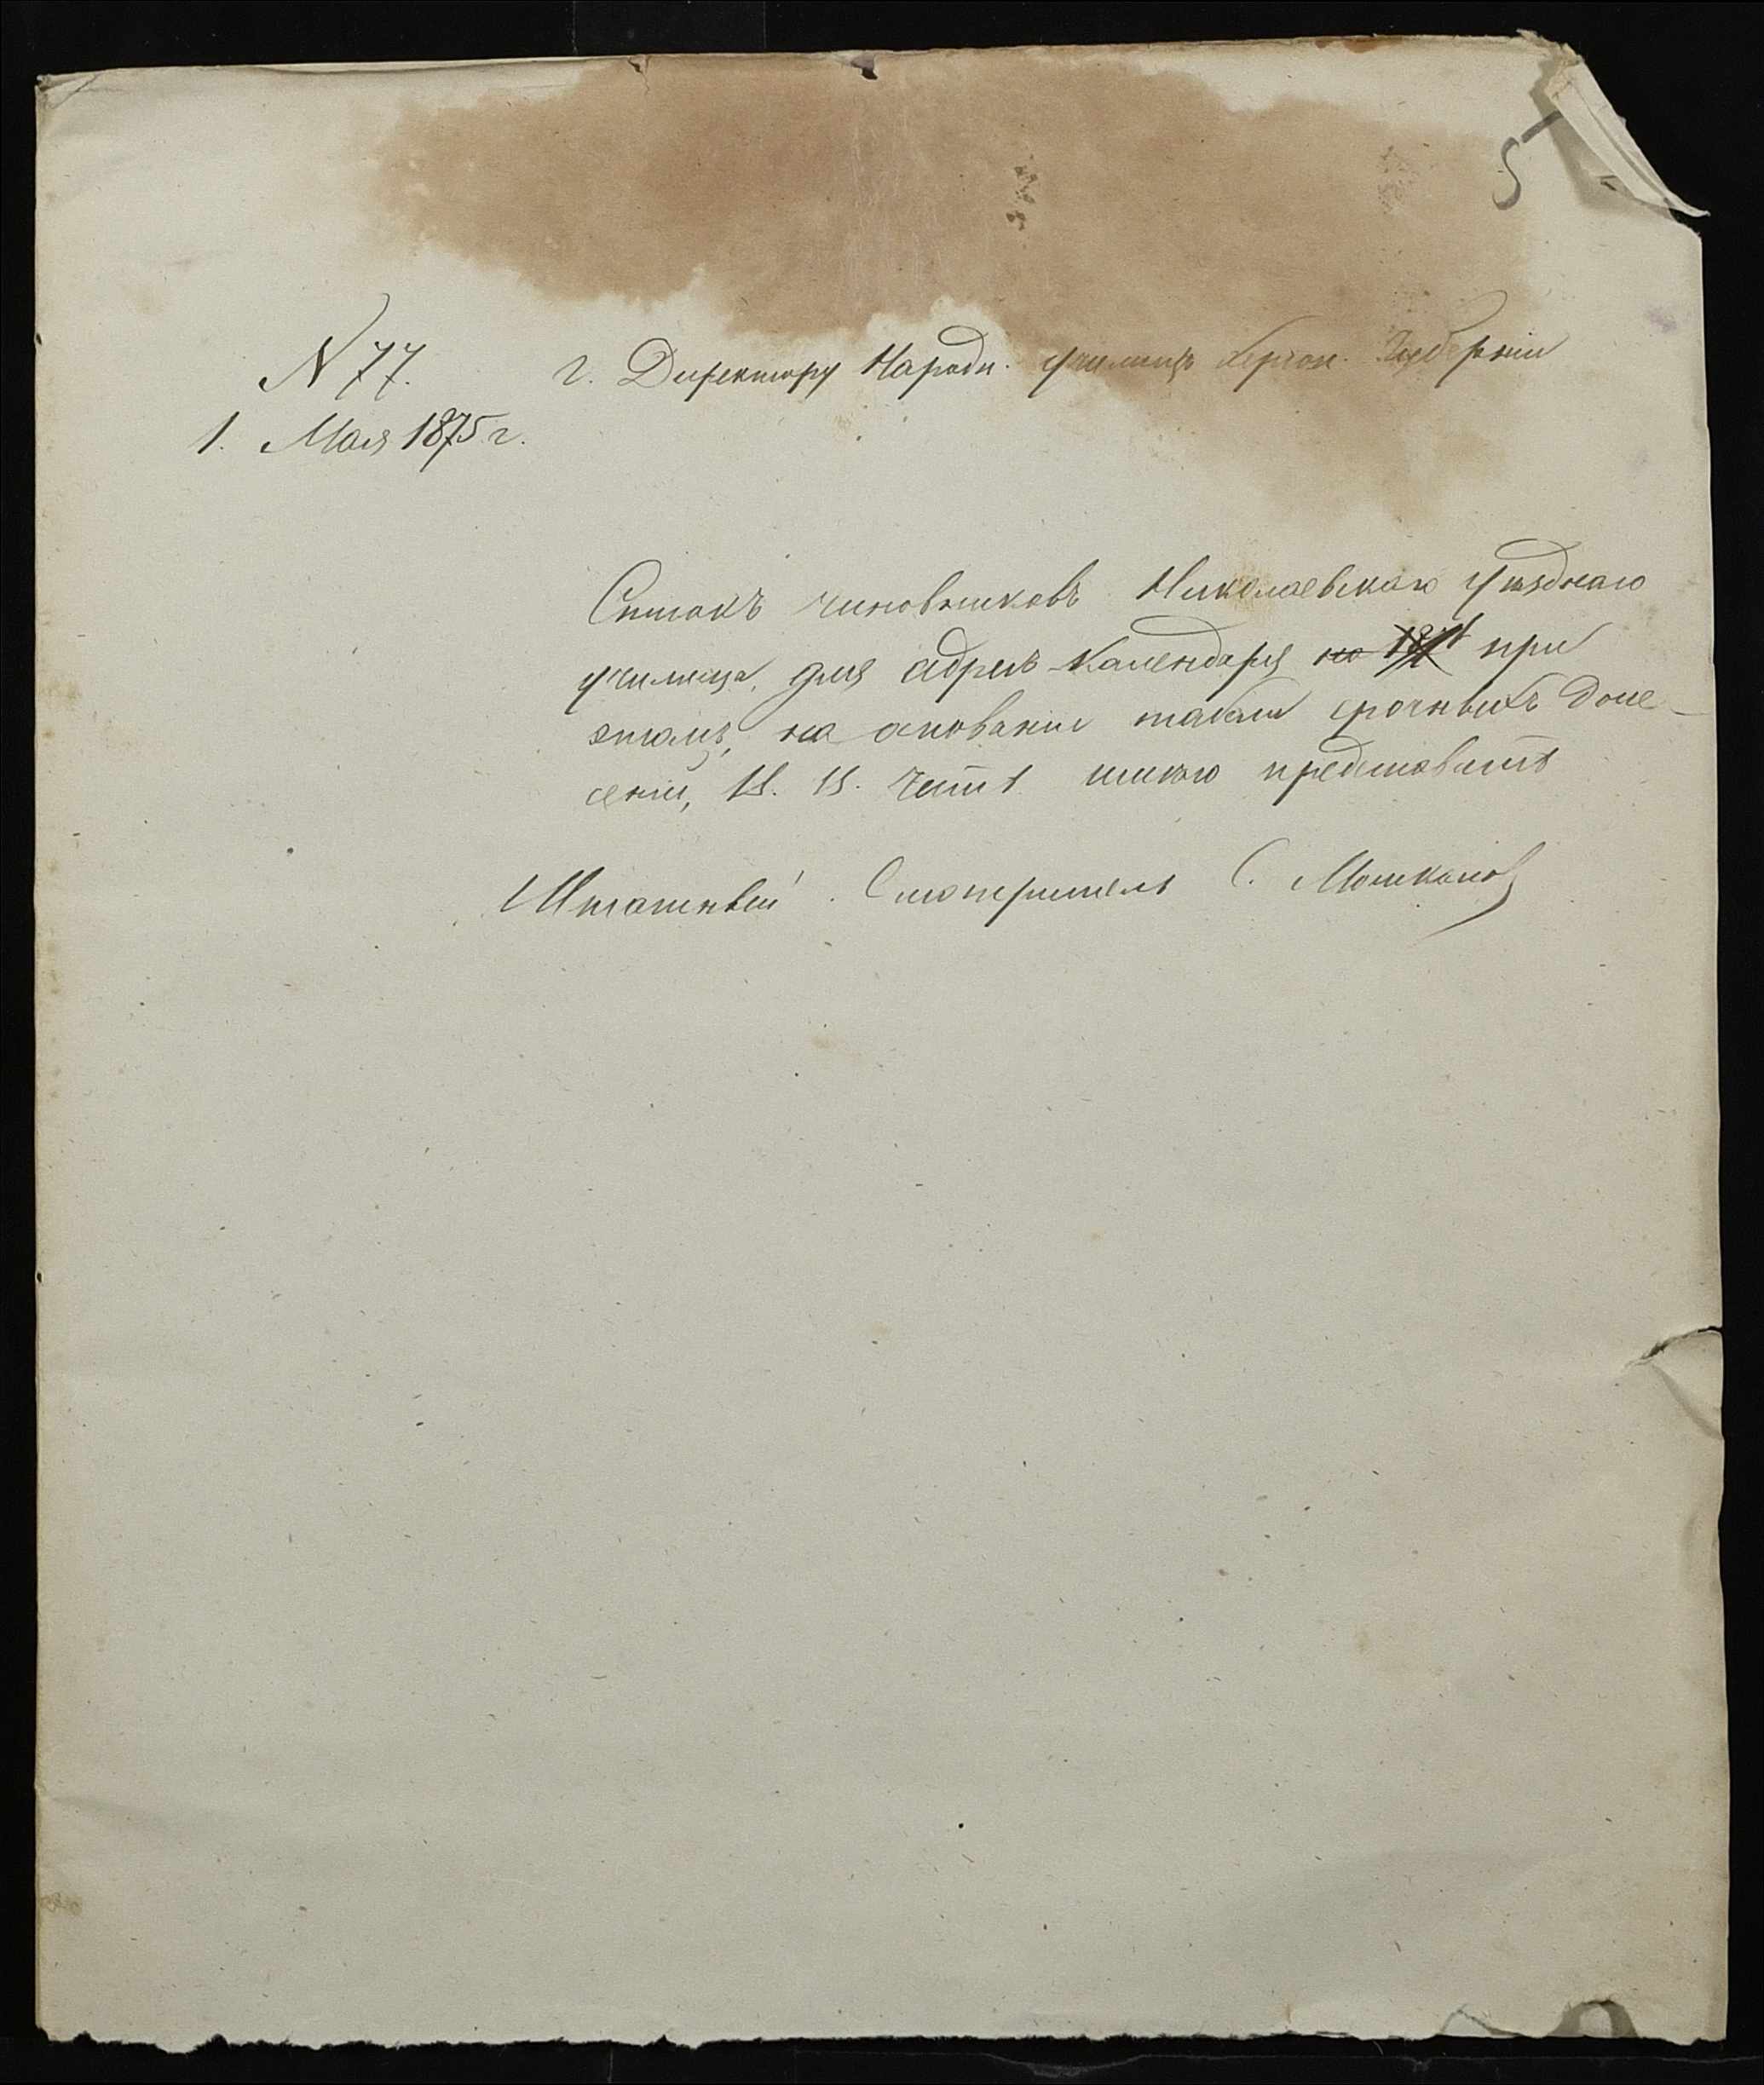 5
N 77.
1. Мая 1875 г.
г. Директору Народн. училищъ Херсон. Губерніи
Списокъ чиновниковъ Николаевскаго уѣзднаго
училища, для адресъ-календаря на 187 при
этомъ, на основаніи табели срочныхъ доне-
сеній, В. В. честь имѣю представить
Штатный Смотритель С.